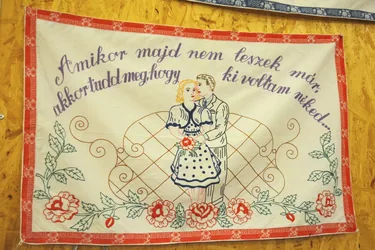 Amikor majd nem leszek már,
akkor tudd meg, hogy ki voltam néked...